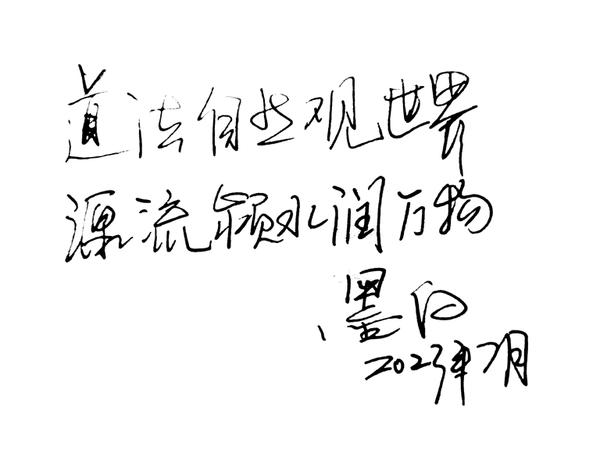 道法自然观世界
源流颍水润万物
墨白
2023年7月